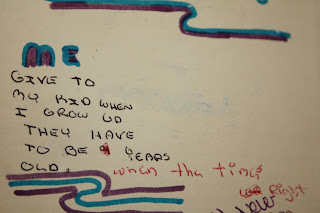 ME
GIVE TO
MY KID WHEN
I GROW UP
THEY HAVE
TO BE 9 YEARS
OLD. when the time's
Right